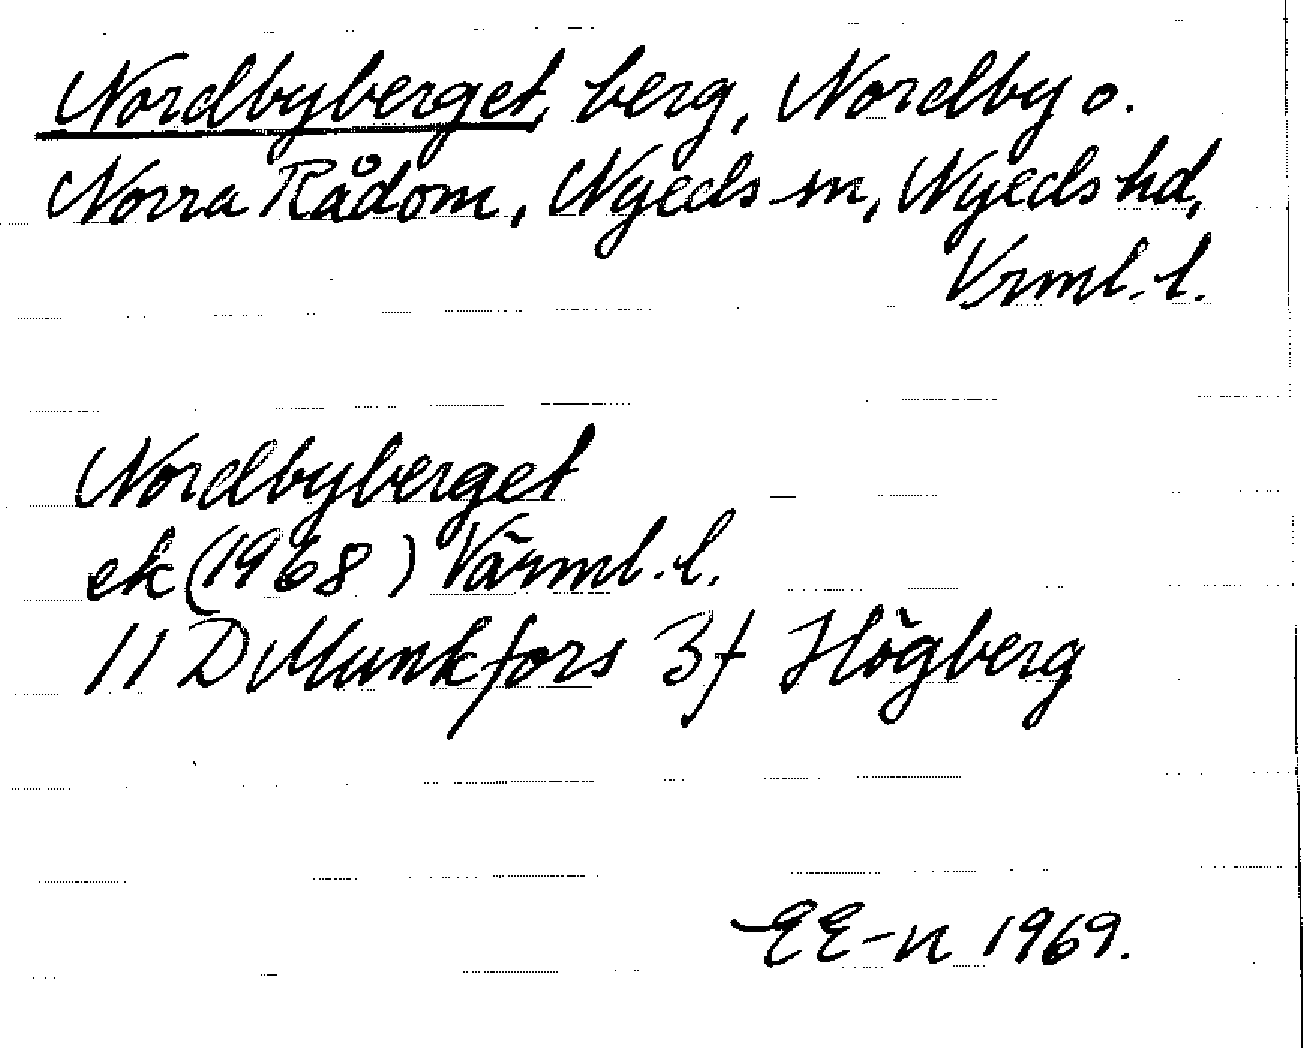 Nordbyberget, berg, Nordby o.
Norra Rådom, Nyeds sn, Nyeds hd,
Vrml. l.
Nordbyberget
ek (1968) Värml. l.
11 D Munkfors 3f Högberg
EE-n 1969.